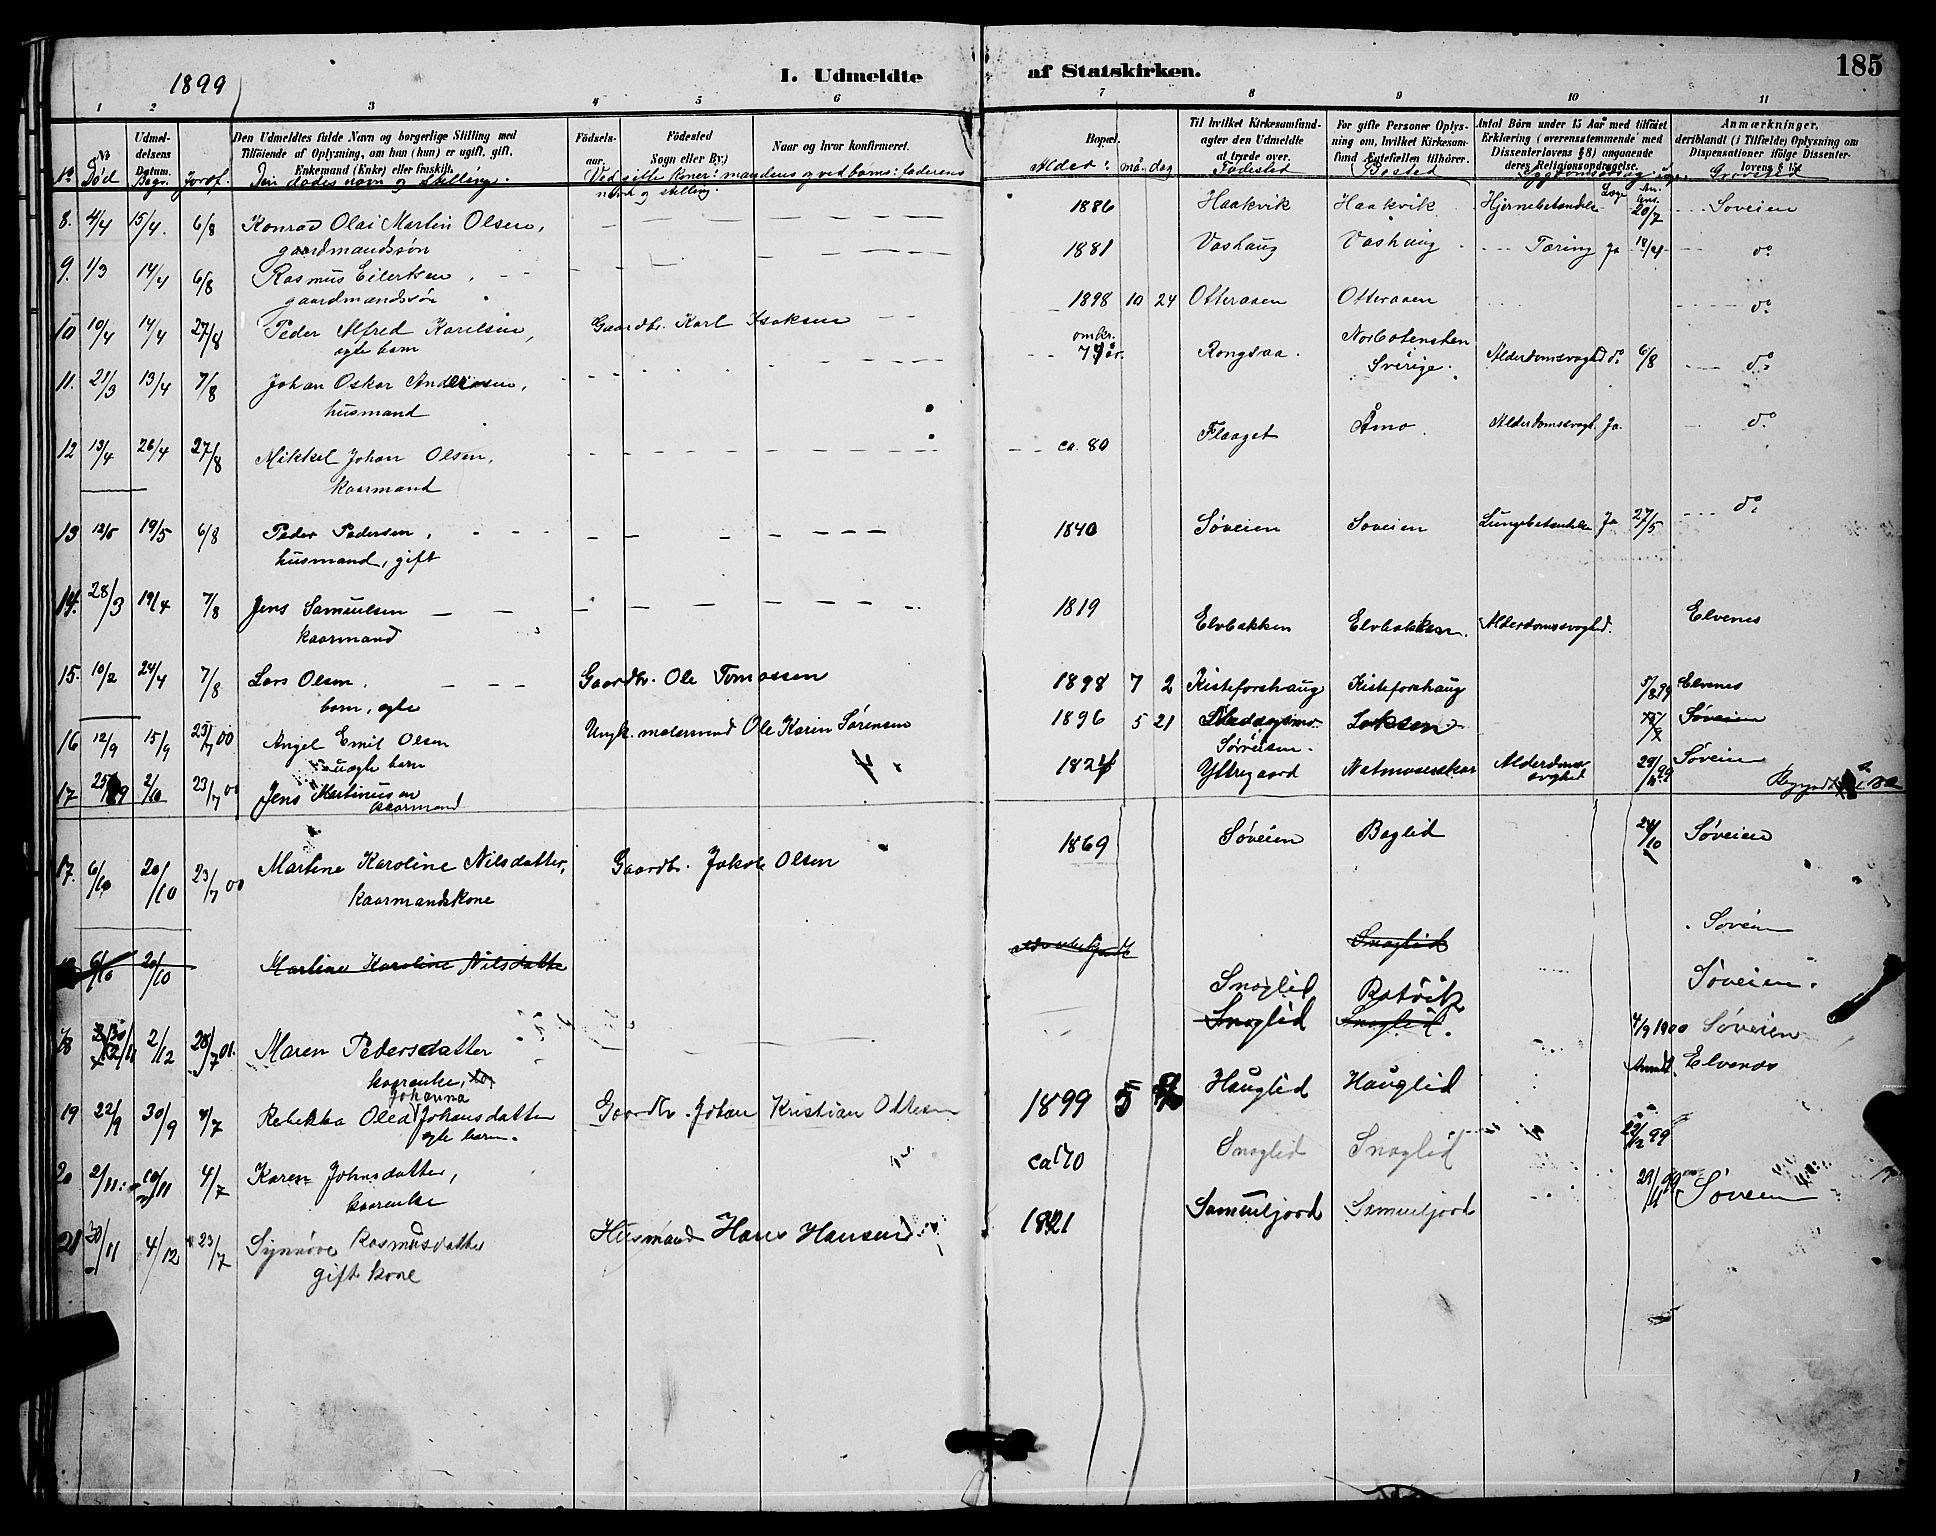 185
1899
I. Udmeldte af Statskirken.
1 2 3 4 5 6 7 8 9 10 11
No
Udmeldelsens Datum.
Den Udmeldtes fulde Navn og borgerlige Stilling med Tilføiende af Oplysning, om han (hun) er ugift, gift, Enkemand (Enke) eller fraskilt.
Fødselsaar.
Fødested Sogn eller By.)
Naar og hvor konfirmeret.
Bopæl.
Til hvilket Kirkesamfund agter den Udmeldte at træde over.
For gifte Personer Oplysning om, hvilket Kirkesamfund Ægtefællen tilhører.
Antal Børn under 15 Aar med tilføiet Erklæring (overensstemmende med Dissenterlovens § 8) angaaende deres Religionsopdragelse.
Anmærkninger, deriblandt (i Tilfælde) Oplysning om Dispensationer ifølge Dissenterlovens §
Død Begr. Jordf. Den dødes navn og stilling. Ved gifte koner: mandens og ved barns: faderens navn og stilling. Alder: må. dag Fødested Bosted
8. 4/4 15/4. 6/8 Konrad Olai Martin Olsen, gaardmandssøn 1886 Haakvik Haakvik Hjernebetændelse 20/7 Soveien
9. 1/3 14/4 6/8 Rasmus Eilertsen, gaardmandssøn 1881 Vashaug Vashaug Tæring Ja do
10 10/4 14/4 27/8 Peder Alfred Karelsen, egte barn Gaardbr. Karl Isaksen 1898 10 24 Otteraasen Otteraasen do
11. 21/3 13/4 7/8 Johan Oskar Andersen, husmand omkr. år. Rongsaa. Norbotensten Sverige. Alderdomssvaghed do 6/8 do
12 13/4 26/4 27/8 Mikkel Johan Olsen, kaarmand ca. 80 Flaaget Åmo Alderdomssvagh. Ja. do
13 12/5 19/5 6/8 Peder Pedersen, husmand, gift 1840 Søveien Soveien Lungebetændelse Ja 27/5 do
14. 28/3 19/4 7/8 Jens Samuelsen kaarmand 1819 Elvbakken Elvbakken. Alderdomssvaghed. Elvenes
15. 10/2 24/4 7/8 Lars Olsen. barn, egte Gaardbr. Ole Tomassen 1898 7 2 Kisteforshaug Kisteforshaug 5/8 99 Elvenes
16 12/9 15/9 23/7 00 Angel Emil Olsen uegte barn Ungk. malersvend Ole Karin Sørensen 1896 5 21 Sørreisen. Søveien
17. 2/10 23/7 00 Jens Martinussen kaarmand Yttregaard Alderdomssvaghed Søveien
17. 6/10 20/10 23/7 00 Martine Karoline Nilsdatter, kaarmandskone Gaardbr. Jakob Olsen 1869 Søveien Baglid 24/10 Søveien
6/10 20/10 Martine Karoline Nilsdatter Snoglid Søveien
Snoglid Rotvik Søveien.
18 2/12 28/7 01. Maren Pedersdatter kaarenke, Snoglid Snoglid. 4/9 1900 Søveien
19 22/9 30/9 Rebekka Olea Johanna Johansdatter egte barn. Gaardbr. Johan Kristian Ottesen 1899 5 Hauglid Hauglid Elvenes
20 2/11. 4/7 Karen Johnsdatter, kaarenke ca 70 Snoglid Snoglid 22/12 99
21 30/11 4/12 23/7 Synnøve Rasmusdatter gift kone Husmand Hans Hansen 1821 Samueljord Samueljord Søveien